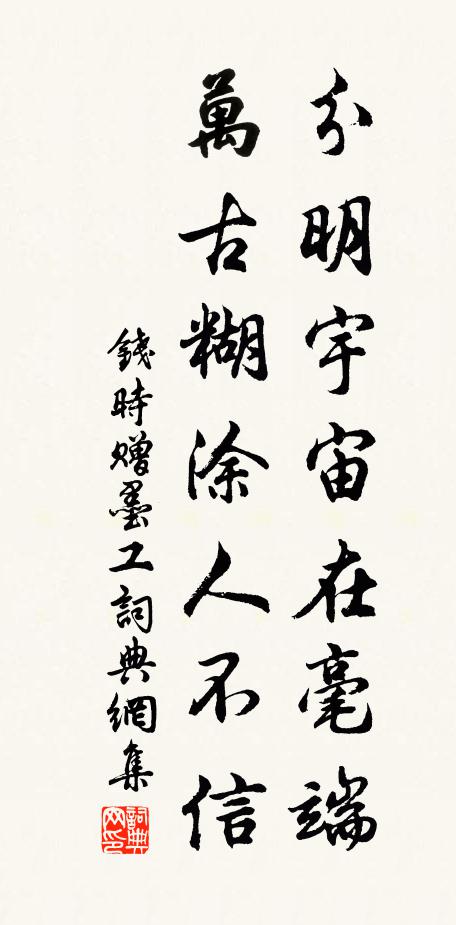 分明宇宙在毫端
萬古糊涂人不信
錢時贈墨工詞典網集
詞典网印